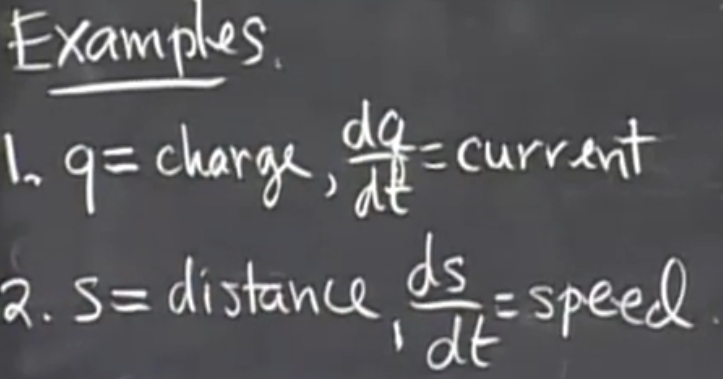 Examples.
1. q = charge, dq/dt = current
2. s = distance, ds/dt = speed.